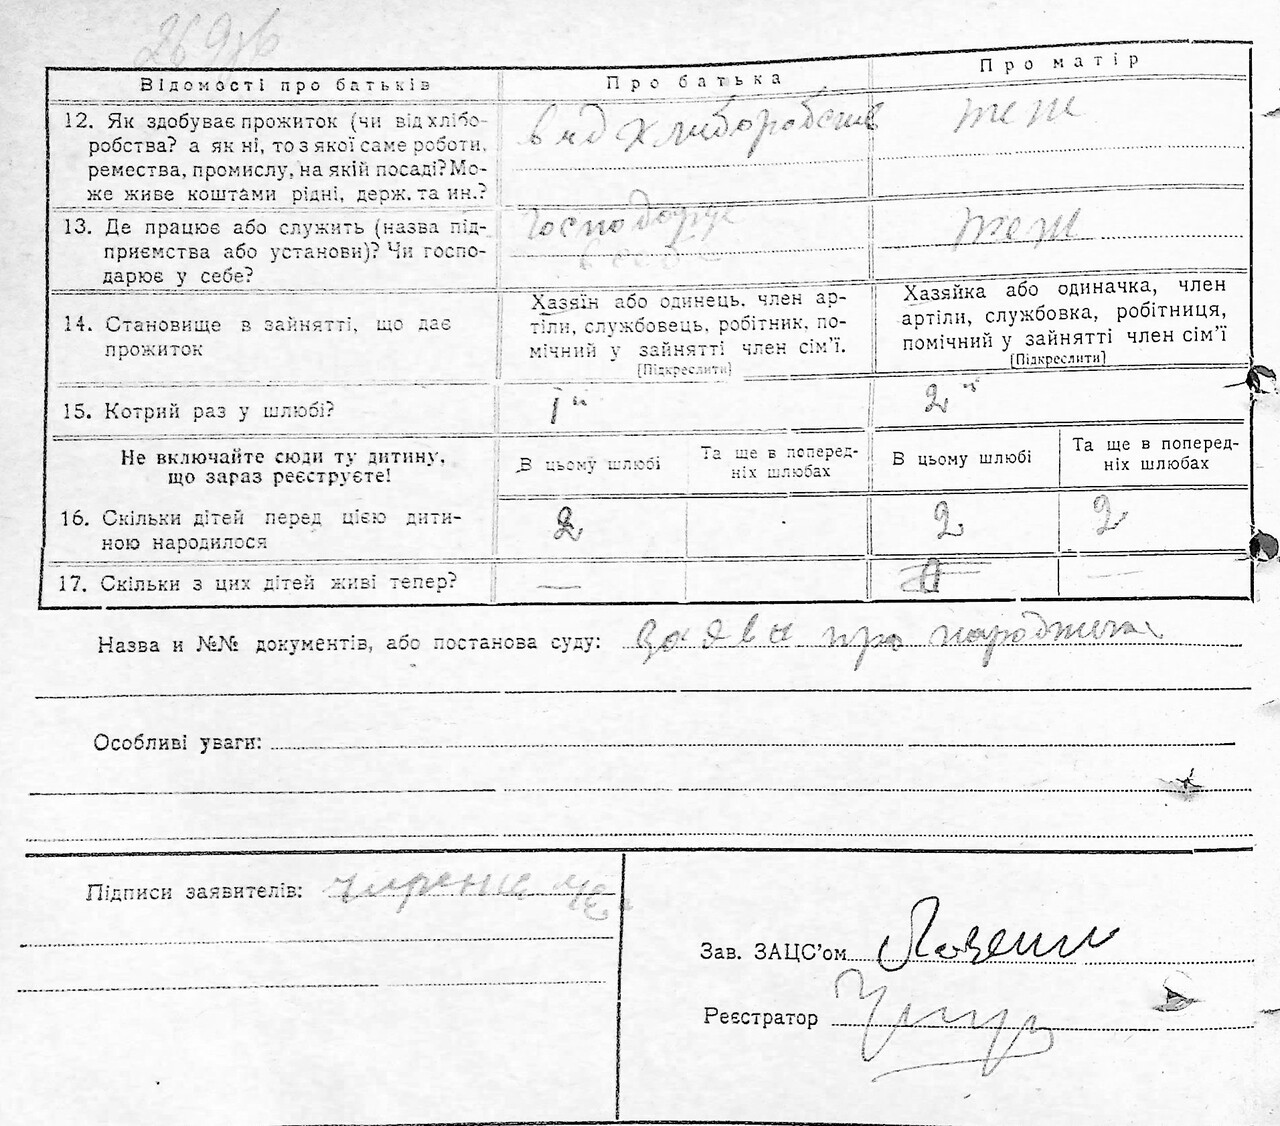 Відомості про батьків
Про батька
Про матір
12. Як здобуває прожиток (чи від хлібо-
робства? а як ні, то з якої саме роботи,
ремества, промислу, на якій посаді? Мо-
же живе коштами рідні, держ. та ин.?
вид хлиборобств
теж
13. Де працює або служить (назва під-
приємства або установи)? Чи госпо-
дарює у себе?
Господарує
в себе
теж
14. Становище в зайнятті, що дає
прожиток
Хазяїн або одинець, член ар-
тіли, службовець, робітник, по-
мічний у зайнятті член сім'ї.
[Підкреслити]
Хазяйка або одиначка, член
артіли, службовка, робітниця,
помічний у зайнятті член сім'ї
[Підкреслити]
15. Котрий раз у шлюбі?
1й
2й
Не включайте сюди ту дитину,
що зараз реєструєте!
В цьому шлюбі
Та ще в поперед-
ніх шлюбах
В цьому шлюбі
Та ще в поперед-
ніх шлюбах
16. Скільки дітей перед цією дити-
ною народилося
2
2
2
17. Скільки з цих дітей живі тепер?
—
—
Назва и №№ документів, або постанова суду: заява про
Особливі уваги:
Підписи заявителів:
Зав. ЗАЦС'ом
Реєстратор